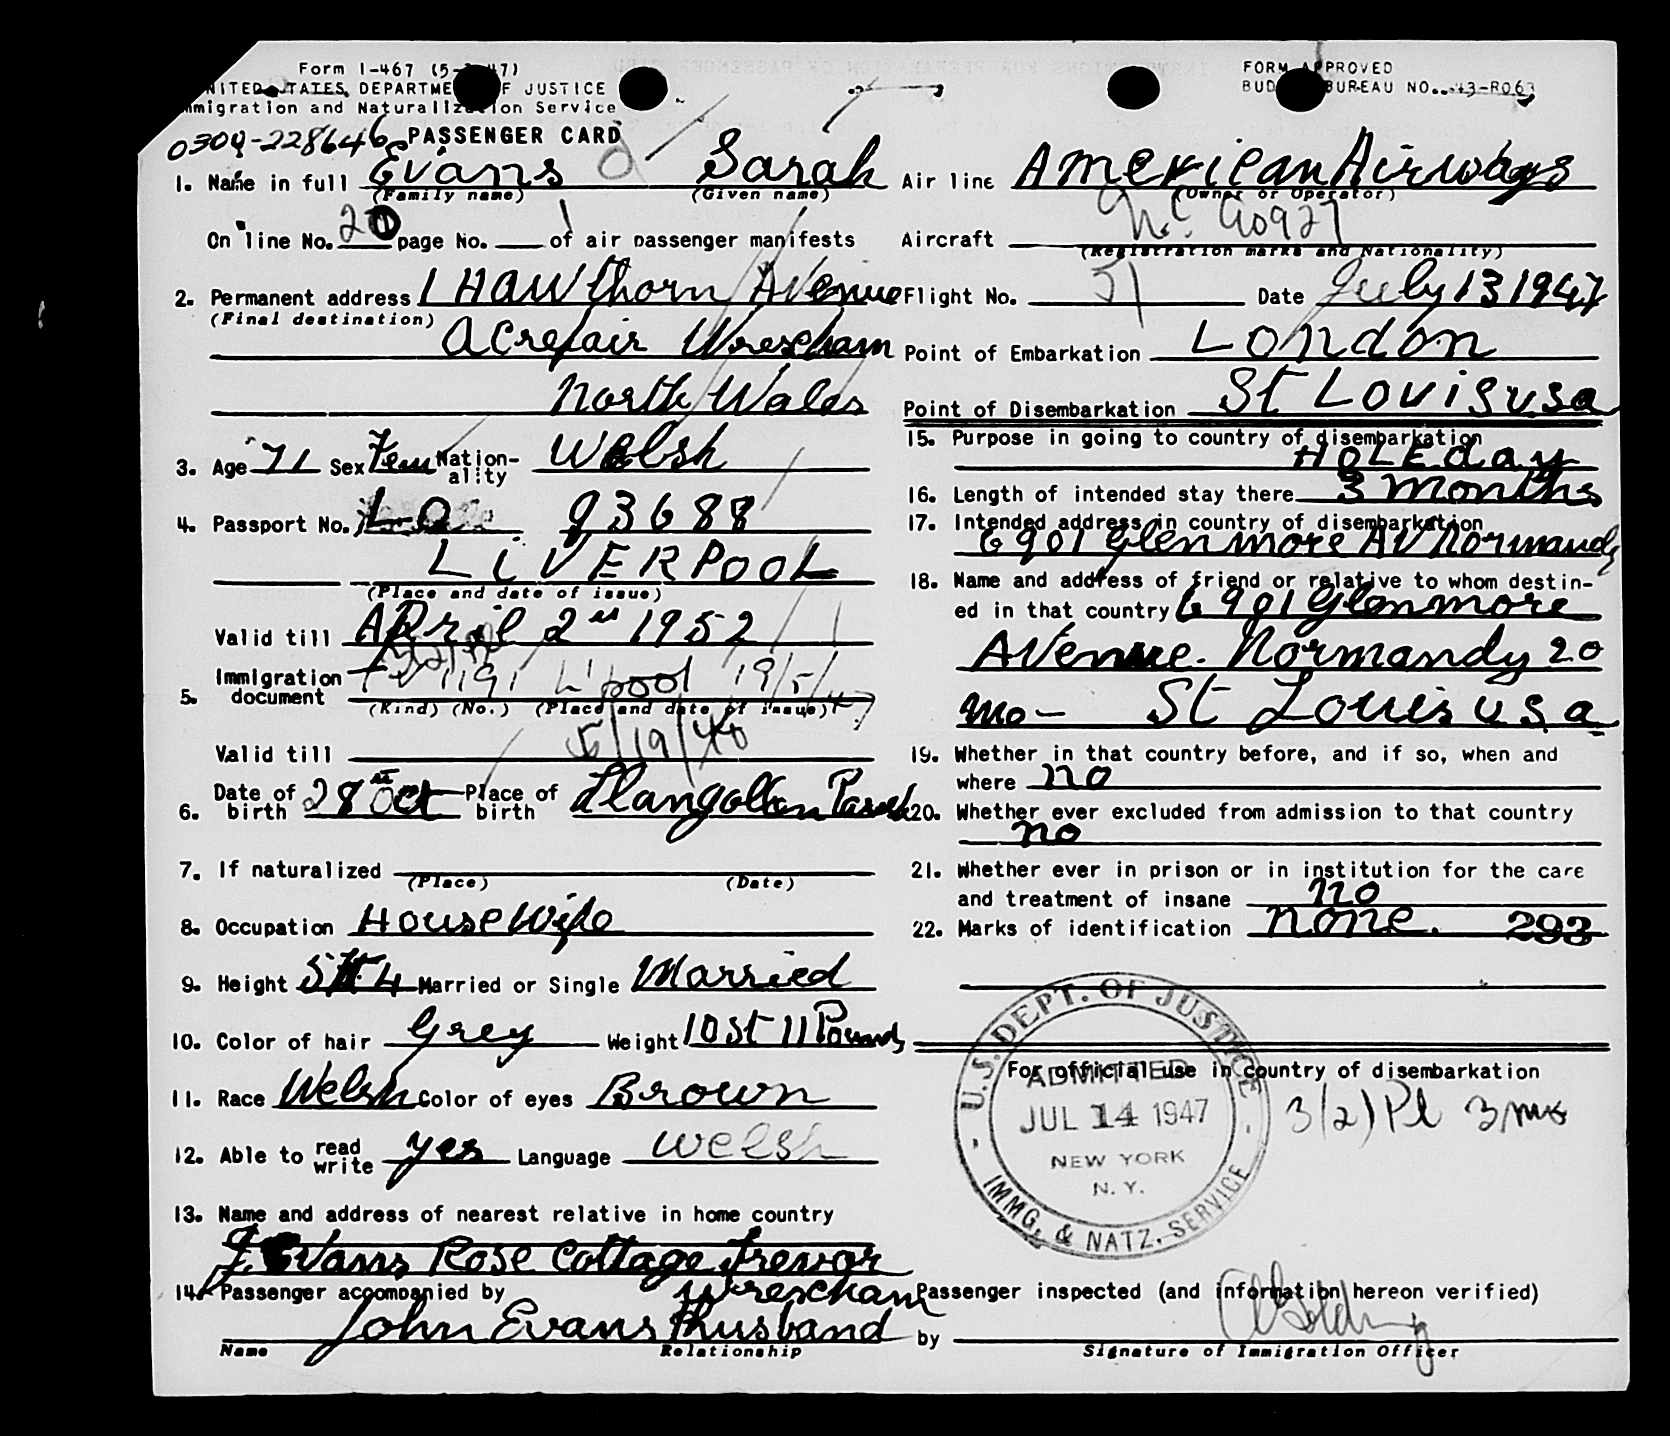 Form I-467 (5-
UNITED STATES DEPARTMENT OF JUSTICE
Immigration and Naturalization Service
FORM APPROVED
BUDGET BUREAU NO. 43-R063
0300-228646 PASSENGER CARD
1. Name in full Evans Sarah
(Family name) (Given name)
On line No. 20 page No. 1 of air passenger manifests
2. Permanent address 1 HAWthorn Avenue
(Final destination)
ACrefair Wrescham
North Wales
3. Age 71 Sex Fem Nationality Welsh
4. Passport No. LO 93688
LiVERPOOL
(Place and date of issue)
Valid till APril 2nd 1952
5. Immigration document 1191 L'pool 19/5/47
(Kind) (No.) (Place and date of issue)
Valid till 5/19/48
6. Date of birth 28 Oct Place of birth Llangollen
7. If naturalized
(Place) (Date)
8. Occupation HouseWife
9. Height 5 ft 4 Married or Single Married
10. Color of hair Grey Weight 10 St 11 Pounds
11. Race Welsh Color of eyes Brown
12. Able to read write yes Language welsh
13. Name and address of nearest relative in home country
Evans Rose Cottage Trevor
Wrescham
14. Passenger accompanied by
John Evans Husband
Name Relationship
Air line American Airways
(Owner or Operator)
Aircraft N.C. 90927
(Registration marks and Nationality)
Flight No. 71 Date July 13 1947
Point of Embarkation London
Point of Disembarkation St Louis usa
15. Purpose in going to country of disembarkation
HoLEday
16. Length of intended stay there 3 months
17. Intended address in country of disembarkation
6901 Glenmore AV Normandy
18. Name and address of friend or relative to whom destin-
ed in that country 6901 Glenmore
AVenue. Normandy 20
Mo- St Louis u s a
19. Whether in that country before, and if so, when and
where no
20. Whether ever excluded from admission to that country
no
21. Whether ever in prison or in institution for the care
and treatment of insane no
22. Marks of identification none. 293
For official use in country of disembarkation
U.S. DEPT. OF JUSTICE
ADMITTED
JUL 14 1947
NEW YORK
N. Y.
IMMG. & NATZ. SERVICE
3(2) Pl 3 mos
Passenger inspected (and information hereon verified)
by
Signature of Immigration Officer